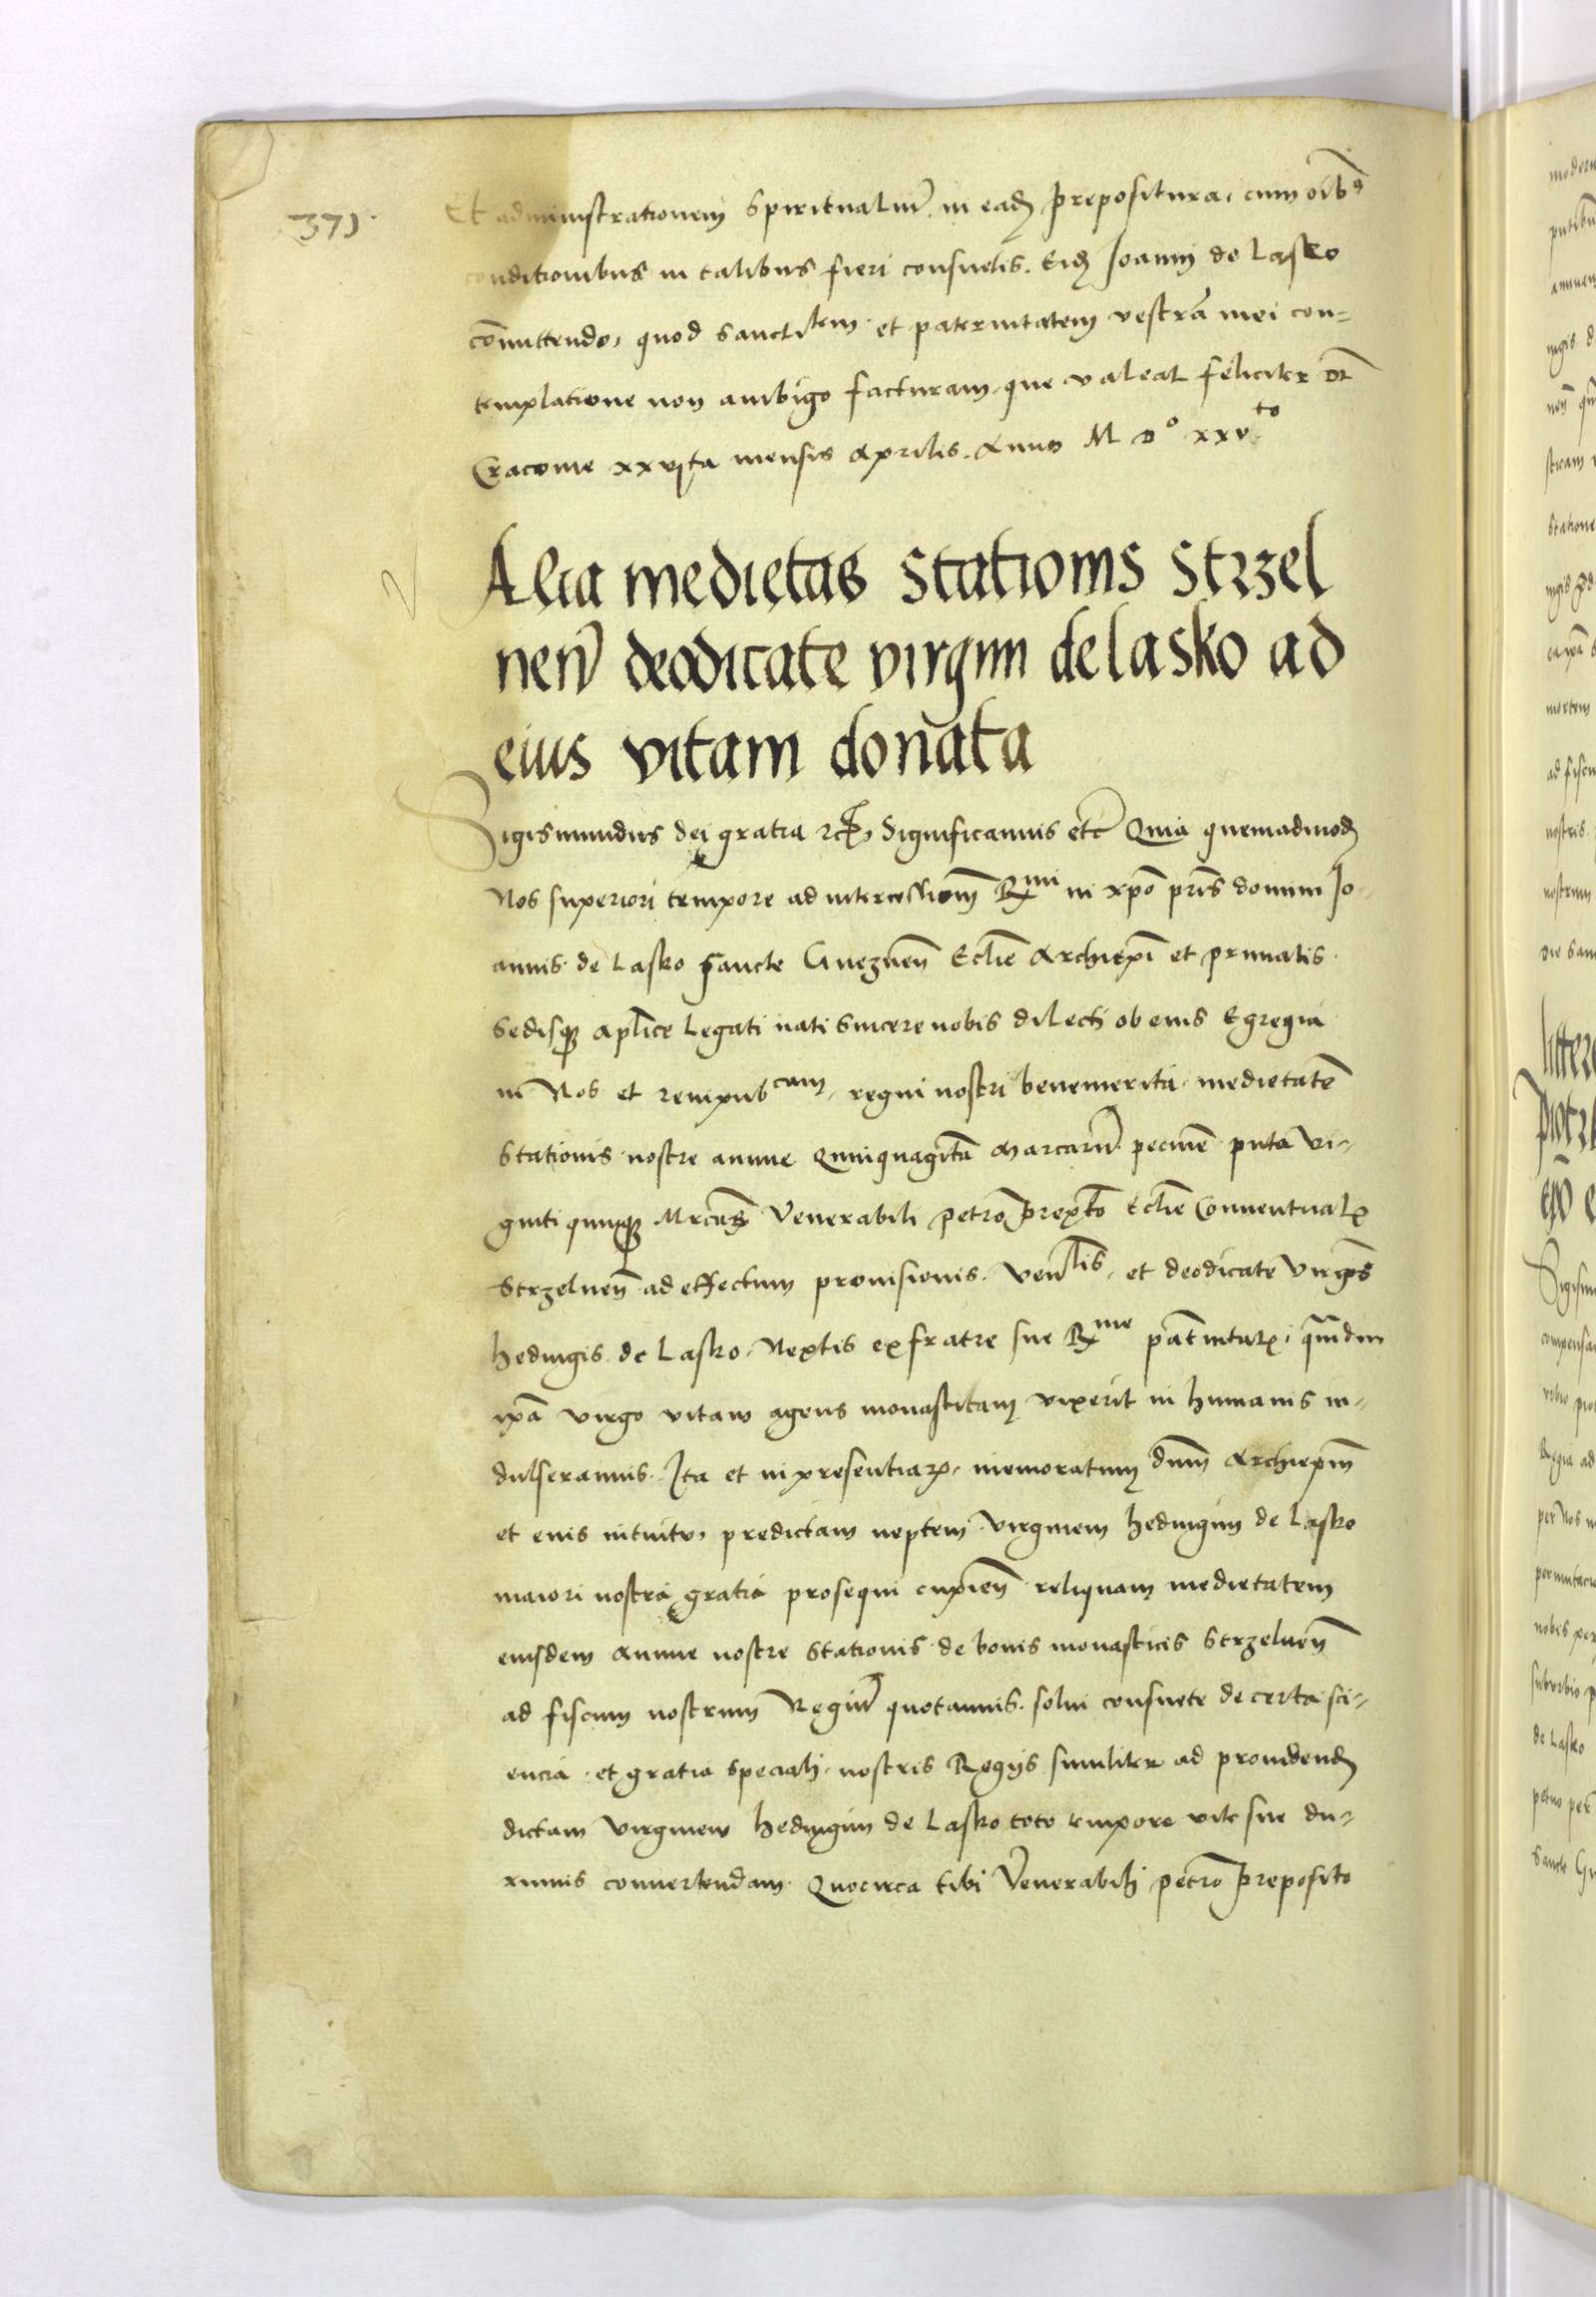 371.
Et administrationem spiritualiū in eadē prepositura, cum oib9
conditionibus in talibus fieri consuetis. Eidē Joanni de Lasko
cōmittendo, quod sanctitem et paternitatem vestrā mei con=
templatione non ambigo facturam, que valeat feliciter Dt
Cracovie xxvjta mensis Aprilis. Anno M Do xxvto
Alia medietas Stationis Strzel
neñ deodicate virgini de lasko ad
eius vitam donata
Sigismundus dei gratia rex Significamus etc̄ Quia quemadmodū
Nos superiori tempore ad intercessionē Rmi in xpō pr̄is domini Jo
annis de Lasko sancte Gnezneñ Eccl̄ie Archiepi et primatis
sedisq3 ap̄lice Legati nati sincere nobis dilecti ob eius Egregia
in Nos et rempubcam, regni nostri benemerita, medietatē
Stationis nostre annue Quinquagita Marcarū pecunie puta vi=
ginti quinq3 Mrcas Venerabili petro prep̄to Eccl̄ie Conventual
Strzelneñ ad effectum provisionis. Venlis, et deodicate Virgis
Hedvigis de Lasko, Neptis ex fratre sue Rme pat̄nitatis, quādiu
ip̄a virgo vitam agens monasticam vixerit in humanis in=
dulseramus. Ita et in presentiar, memoratum dn̄m Archiep̄m
et eius intuitu, predictam neptem Virginem Hedvigim de Lasko
maiori nostra gratia prosequi cupieñ reliquam medietatem
eiusdem annue nostre Stationis de bonis monasticis Strzelneñ
ad fiscum nostrum Regiū quotannis. solvi consuete de certa sci=
encia et gratia speciali, nostris Regijs similiter ad providendū
dictam Virginem Hedvigim de Lasko toto tempore vite sue du=
ximus convertendam Quocirca tibi Venerabili petro preposito